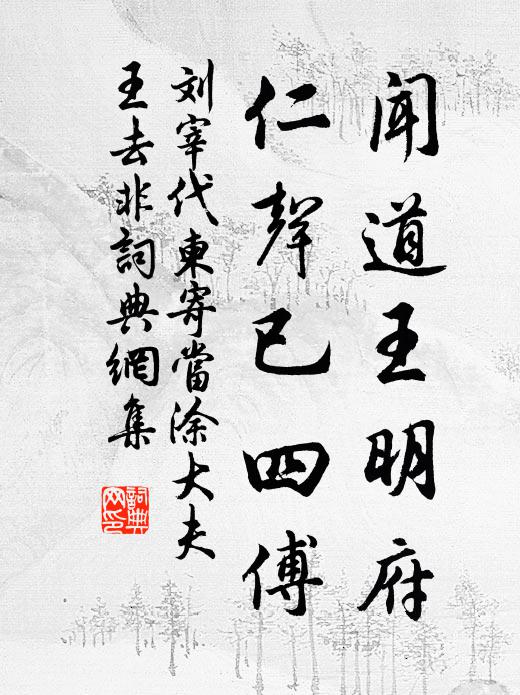 闻道王明府
仁声已四傅
刘宰代柬寄當涂大夫
王去非詞典網集
詞典
网印